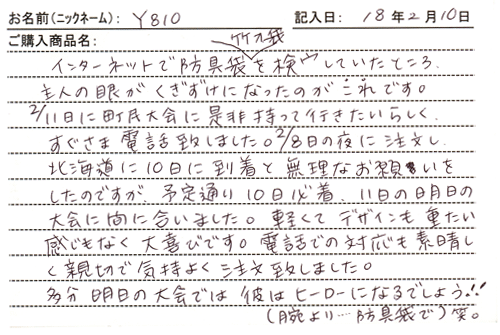 お名前(ニックネーム): Y810 記入日: 18年2月10日
ご購入商品名:
竹刀袋
インターネットで防具袋を検ウしていたところ、
主人の眼がくぎずけになったのがこれです。
2/11日に町民大会に是非持って行きたいらしく、
すぐさま電話致しました。2/8日の夜に注文し、
北海道に10日に到着と無理なお願いを
したのですが、予定通り10日必着、11日の日月日の
大会に間に合いました。軽くてデザインも重たい
感じもなく大喜びです。電話での対応も素晴し
く親切で気持よく注文致しました。
多分明日の大会では彼はヒーローになるでしょう!!
(腕より…防具袋で)笑。